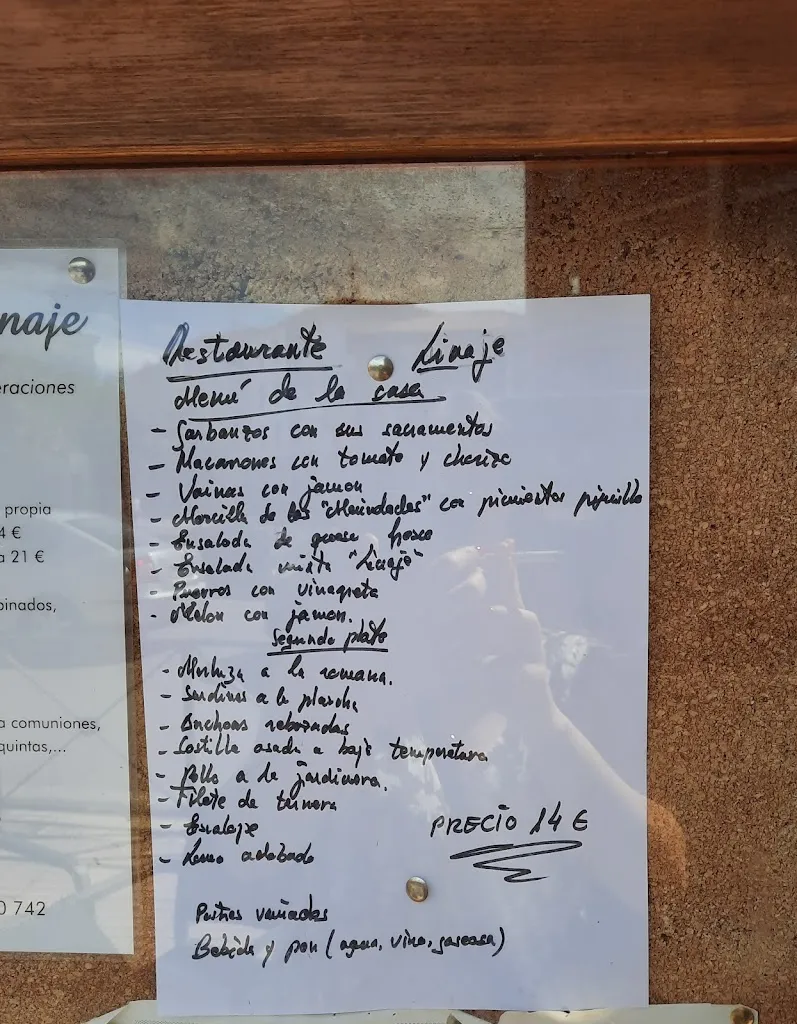 naje
eraciones
propia
4 €
a 21 €
binados,
a comuniones,
quintas,...
0 742
Restaurante Linaje
Menú de la casa
- Garbanzos con sus sacramentos
- Macarrones con tomate y chorizo
- Vainas con jamon
- Morcilla de las "Merindades" con pimientos piquillo
- Ensalada de queso fresco
- Ensalada mixta "Linaje"
- Puerros con vinagreta
- Melon con jamon.
Segundo plato
- Merluza a la romana.
- Sardinas a la plancha
- Anchoas rebozadas
- Costilla asada a baja temperatura
- Pollo a la jardinera.
- Filete de ternera
- Escalope
- Lomo adobado
PRECIO 14 €
Postres variados
Bebida y pan (agua, vino, gaseosa)